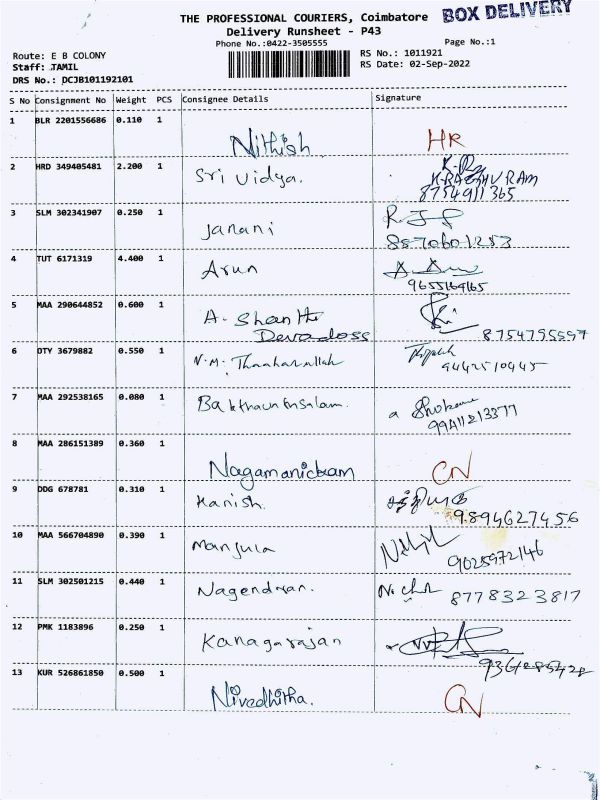 THE PROFESSIONAL COURIERS, Coimbatore
BOX DELIVERY
Delivery Runsheet - P43
Phone No.:0422-3505555
Page No.:1
Route: E B COLONY
RS No.: 1011921
Staff: TAMIL
RS Date: 02-Sep-2022
DRS No.: DCJB101192101
S No Consignment No Weight PCS Consignee Details Signature
1 BLR 2201556686 0.110 1
Nithish HR
2 HRD 349405481 2.200 1 Sri Vidya.
K.RAGHURAM
8754911365
3 SLM 302341907 0.250 1
Janani
8870601253
4 TUT 6171319 4.400 1 Arun
9655164165
5 MAA 290644852 0.600 1 A. Shanthi
Devadoss 8754795597
6 OTY 3679882 0.550 1 N.M. Thaahaullah
9442510445
7 MAA 292538165 0.080 1
9941213377
8 MAA 286151389 0.360 1
Nagamanickam CN
9 DDG 678781 0.310 1 Hanish.
9894627456
10 MAA 566704890 0.390 1 Manjula
9025972146
11 SLM 302501215 0.440 1 Nagendran. 8778323817
12 PMK 1183896 0.250 1 Kanagarajan
13 KUR 526861850 0.500 1
Nivedhitha. CN